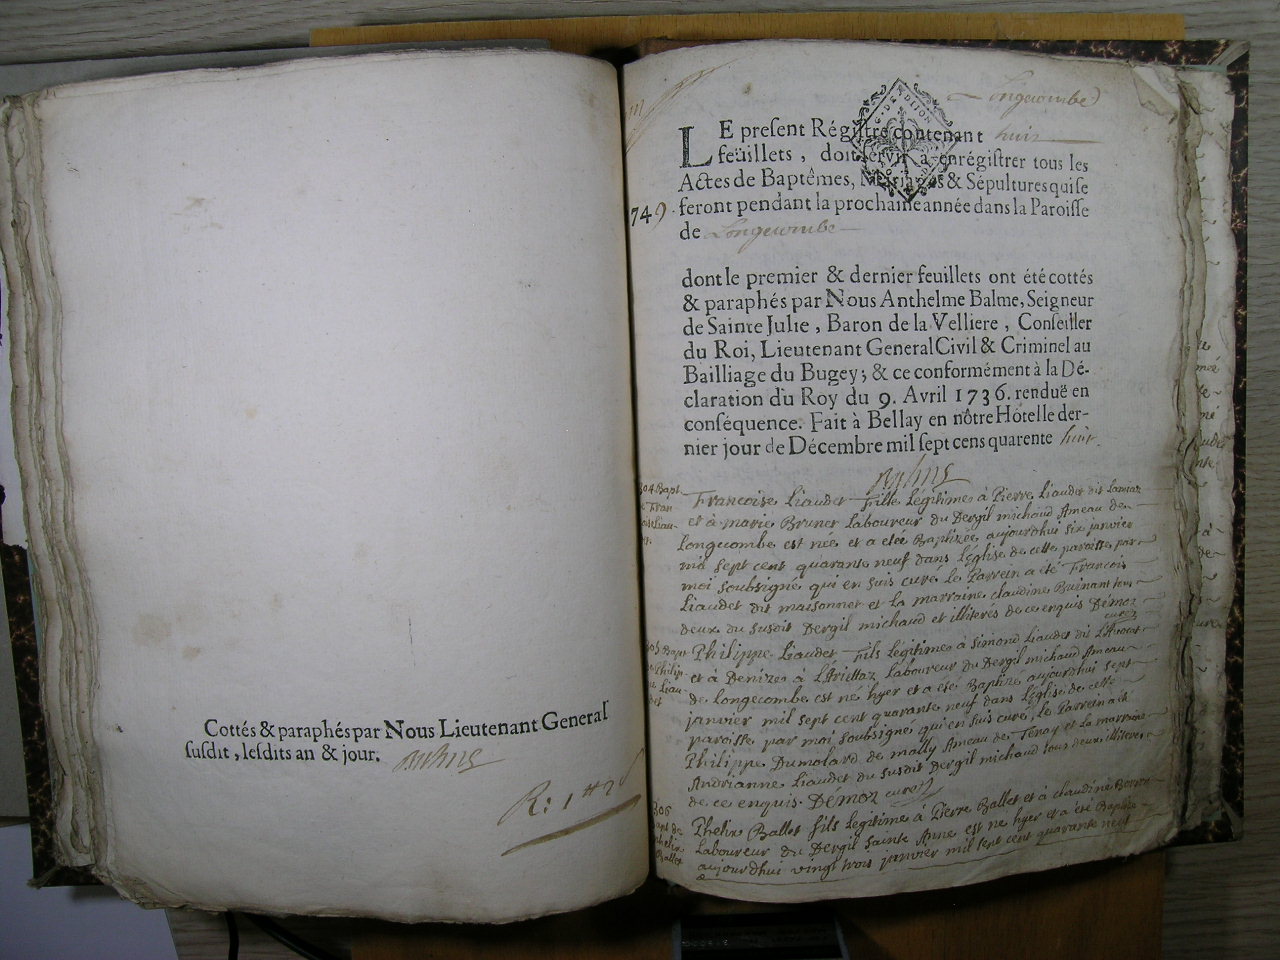 Cottés & paraphés par Nous Lieutenant General
susdit, lesdits an & jour.
R: 1
Longecombe
LE present Régistre contenant huit
feüillets, doit servir à enrégistrer tous les
Actes de Baptêmes, Mariages & Sépultures qui se
749. feront pendant la prochaine année dans la Paroisse
de Longecombe
dont le premier & dernier feuillets ont été cottés
& paraphés par Nous Anthelme Balme, Seigneur
de Sainte Julie, Baron de la Velliere, Conseiller
du Roi, Lieutenant General Civil & Criminel au
Bailliage du Bugey; & ce conformément à la Dé-
claration du Roy du 9. Avril 1736. renduë en
conséquence. Fait à Bellay en nôtre Hôtel le der-
nier jour de Décembre mil sept cens quarente huit.
Francoise Liaudet fille Légitime à Pierre Liaudet dit
et à marie Brunet Laboureur du Dergil michaud Ameau de
Longecombe est née et a eteé Baptizeé aujourdhui six janvier
mil sept cent quarante neuf dans Léglise de cette paroisse par
moi soubsigné qui en suis curé Le Parrein a été Francois
Liaudet dit maisonnet et la marraine claudine Buinant tous
deux du susdit Dergil michaud et illiterés de ce enquis Démoz
curez
Philippe Liaudet fils Légitime à Simond Liaudet dit
et à Denize à Lhriettaz Laboureur du Dergil michaud Ameau
de Longecombe est né hyer et a été Baptizé aujourdhui sept
janvier mil sept cent quarante neuf dans Léglise de cette
paroisse par moi soubsigné qui en suis curé, Le Parrein a été
Philippe Dumolard de mally Ameau de Tenay et La marraine
Andrianne Liaudet du susdit Dergil michaud tous deux illiteres
de ce enquis. Démoz curez
306
Phelix Ballet fils Légitime à Pierre Ballet et à claudine
Laboureur du Dergil Sainte Anne est ne hyer et a été Baptize
aujourdhui vingt trois janvier mil sept cent quarante neuf